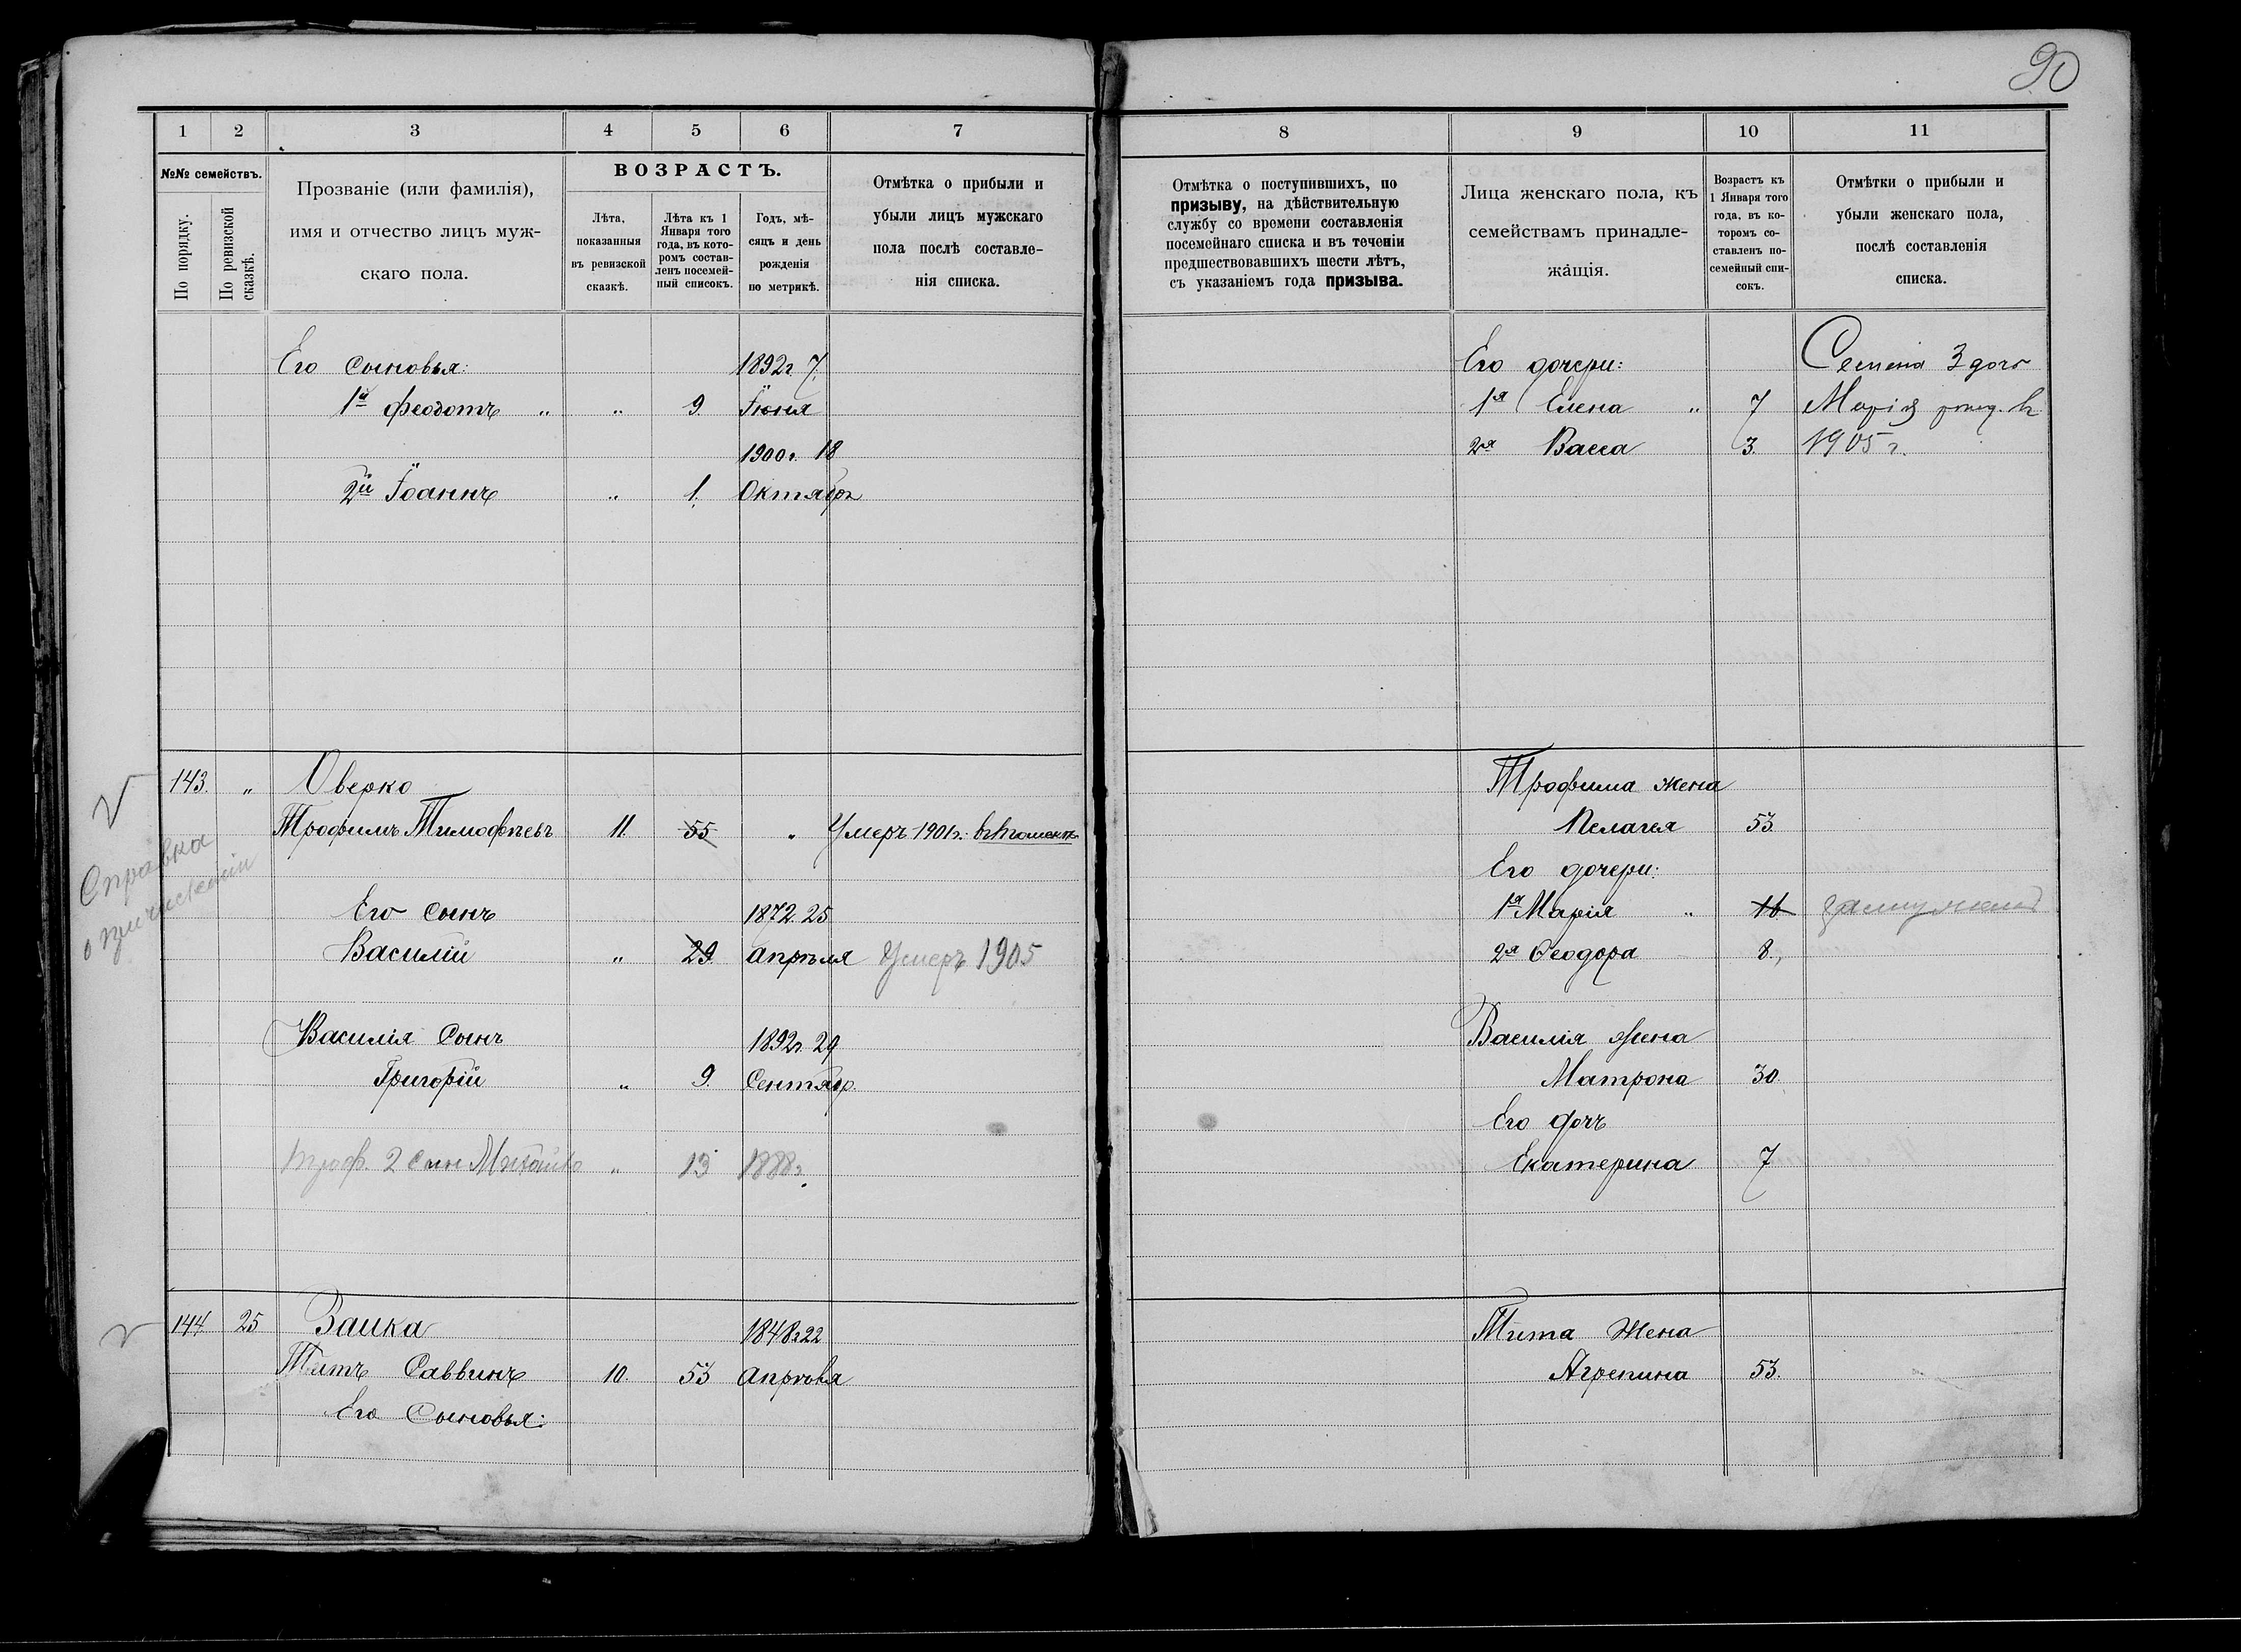 90
1 2 3 4 5 6 7
№№ семействъ.
По порядку.
По ревизской сказкѣ.
Прозваніе (или фамилія),
имя и отчество лицъ муж-
скаго пола.
ВОЗРАСТЪ.
Лѣта,
показанныя
въ ревизской
сказкѣ.
Лѣта къ 1
Января того
года, въ кото-
ромъ состав-
ленъ посемей-
ный списокъ.
Годъ, мѣ-
сяцъ и день
рожденія
по метрикѣ.
Отмѣтка о прибыли и
убыли лицъ мужскаго
пола послѣ составле-
нія списка.
Его сыновья: 1892г. 7
1й Феодотъ " " 9 Іюня
1900г. 18
2й Іоаннъ " 1. Октября
143. " Оверко
Трофимъ Тимофѣевъ 11. 55 " Умеръ 1901г.
Справка
о причисленіи
Его сынъ 1872. 25
Василій " 29 Апрѣля Умеръ 1905
Василія Сынъ 1892г. 29
Григорій " 9 Сентябр.
Троф. 2 сын Михайло " 13 1888г.
144. 25 Заика 1848г. 22
Титъ Саввинъ 10. 53 Апрѣля
Его Сыновья:
8 9 10 11
Отмѣтка о поступившихъ, по
призыву, на дѣйствительную
службу со времени составленія
посемейнаго списка и въ теченіи
предшествовавшихъ шести лѣтъ,
съ указаніемъ года призыва.
Лица женскаго пола, къ
семействамъ принадле-
жащія.
Возрастъ къ
1 Января того
года, въ ко-
торомъ со-
ставленъ по-
семейный спи-
сокъ.
Отмѣтки о прибыли и
убыли женскаго пола,
послѣ составленія
списка.
Его дочери: Семена 3 доч
1я Елена " 7 Марія рожд. въ
2я Васса 3. 1905 г.
Трофима жена
Пелагея 53.
Его дочери:
1я Марія " 16 замужемъ
2я Феодора 8.
Василія Жена
Матрона 30.
Его дочь
Екатерина 7
Тита Жена
Агрепина 53.